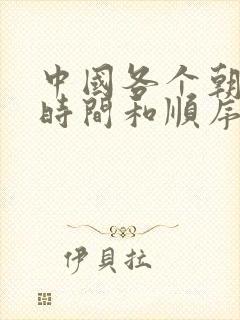 中國各个朝
時間和順序
伊貝拉